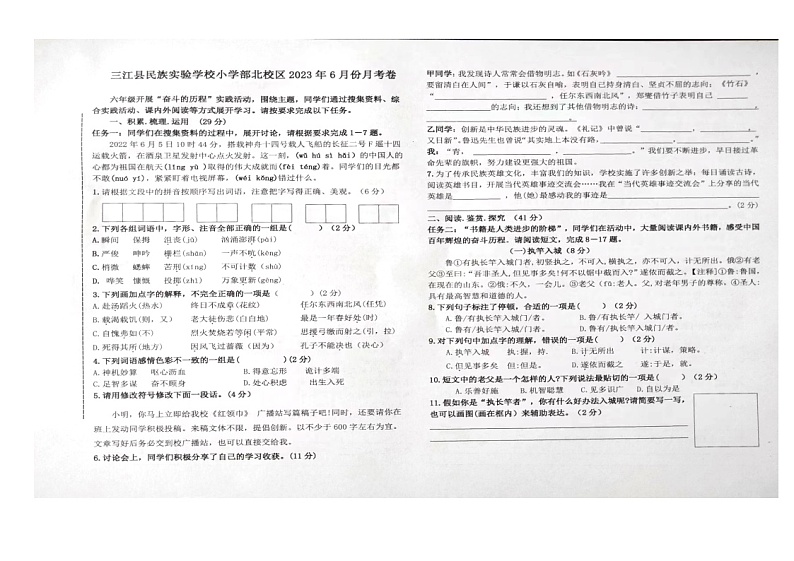 三江县民族实验学校小学部北校区 2023 年 6 月份月考卷
六年级开展“奋斗的历程”实践活动，围绕主题，同学们通过搜集资料、综
合实践活动、课内外阅读等方式展开学习。请按要求完成以下任务。
一、积累.梳理.运用 （29 分）
任务一：同学们在搜集资料的过程中，展开讨论，请根据要求完成 1－7 题。
2022 年 6 月 5 日 10 时 44 分，搭载神舟十四号载人飞船的长征二号 F 遥十四
运载火箭，在酒泉卫星发射中心点火发射。这一刻，(wǔ hú sì hǎi) 的中国人的
心都为祖国在航天(lǐng yù )取得的伟大成就而(fèi téng)着。同学们的目光都
不敢(nuó yí)，紧紧盯着电视屏幕，(wéi kǒng)错过什么。
1.请根据文段中的拼音按顺序写出词语，注意把字写得正确、美观。（6 分）
2.下列各组词语中，字形、注音全部正确的一组是( )（2 分）
A.瞬间 保拇 沮丧(jǔ) 汹涌澎湃(pài)
B.严俊 呻吟 栅栏(zhà) 一声不吭(kēng)
C.梢微 蟋蟀 苦刑(xíng) 不可计数(shǔ)
D.哗笑 慷慨 投掷(zhì) 万象更新(gēng)
3.下列画加点字的解释，不完全正确的一项是（ ）（2 分）
A.赴汤蹈火(热水) 终日不成章(花纹) 任尔东西南北风(任凭)
B.载渴载饥(则，又) 老大徒伤悲(白白地) 最是一年春好处(时)
C.自愧弗如(不) 烈火焚烧若等闲(平常) 思援弓缴而射之(引，拉)
D.死得其所(地方) 因风飞过蔷薇（因为） 孔子不能决也（决心）
4.下列词语感情色彩不一致的一组是( )（2 分）
A.神机妙算 呕心沥血 B.得意忘形 诡计多端
C.足智多谋 奋不顾身 D.处心积虑 出生入死
5.请用修改符号修改下面一段话。（4 分）
小明，你马上立即给我校《红领巾》 广播站写篇稿子吧!同时，还要请你在
班上发动同学积极投稿。来稿文体不限，提倡创新。以不少于 600 字左右为宜。
文章写好后务必交到校广播站，也可以直接交给我。
6.讨论会上，同学们积极分享了自己的学习收获。（11 分）
甲同学：我发现诗人常常会借物明志。如《石灰吟》
要留清白在人间”，于谦以石灰自喻，表明自己持身清白、坚贞不屈的信念；《竹石》
“ ，任尔东西南北风”，郑燮借竹子表明自己
的志向；我还想到了其他借物明志的诗：
。
乙同学：创新是中华民族进步的灵魂。《礼记》中曾说“ ，
又日新”。鲁迅先生也曾说“其实地上本没有路， ”
我：“青， 。”我们要不断进步，早日接过革
命先辈的旗帜，努力建设更强大的祖国。
7.为了传承民族英雄文化，丰富我们的知识，学校实施了许多创新之举：每日诵读古诗，
阅读英雄书目，开展当代英雄事迹交流会……我在“当代英雄事迹交流会”上分享的当代
英雄是 ，他(她)最感动我的事迹是
。（2 分）
二、阅读.鉴赏.探究 （41 分）
任务二：“书籍是人类进步的阶梯”，同学们在活动中，大量阅读课内外书籍，感受中国
百年辉煌的奋斗历程。请阅读短文，完成 8－17 题。
(一)执竿入城（8 分）
鲁①有执长竿入城门者，初竖执之，不可入，横执之，亦不可入，计无所出。俄②有老
父③至曰：“吾非圣人,但见事多矣!何不以锯中截而入?”遂依而截之。【注释】①鲁:鲁国，
在现在的山东。②俄:不久，一会儿。③老父（fǔ:老人。父,对老年男子的尊称。④圣人:
具有最高智慧和道德的人。
8.下列句子标注了停顿，合适的一项是（ ）（2 分）
A.鲁/有/有执长竿入城门者。 B.鲁/有执长竿/ 入城门者。
C.鲁有/执长竿入城门者。 D.鲁有/有执长竿/入城门者。
9.对下列句中加点字的理解，错误的一项是( )（2 分）
A.执竿入城 执:握，持. B.计无所出 计:计谋，策略。
C.但见事多矣 但:但是。 D.遂依而截之 遂:于是，就。
10.短文中的老父是一个怎样的人?下列说法最贴切的一项是( )（2 分）
A.乐善好施 B.机智敏捷 C.见多识广 D.自以为是
11.假如你是“执长竿者”，你有什么好办法入城呢?请简要写一写，
也可以画图(画在框内）来辅助表达。（2 分）